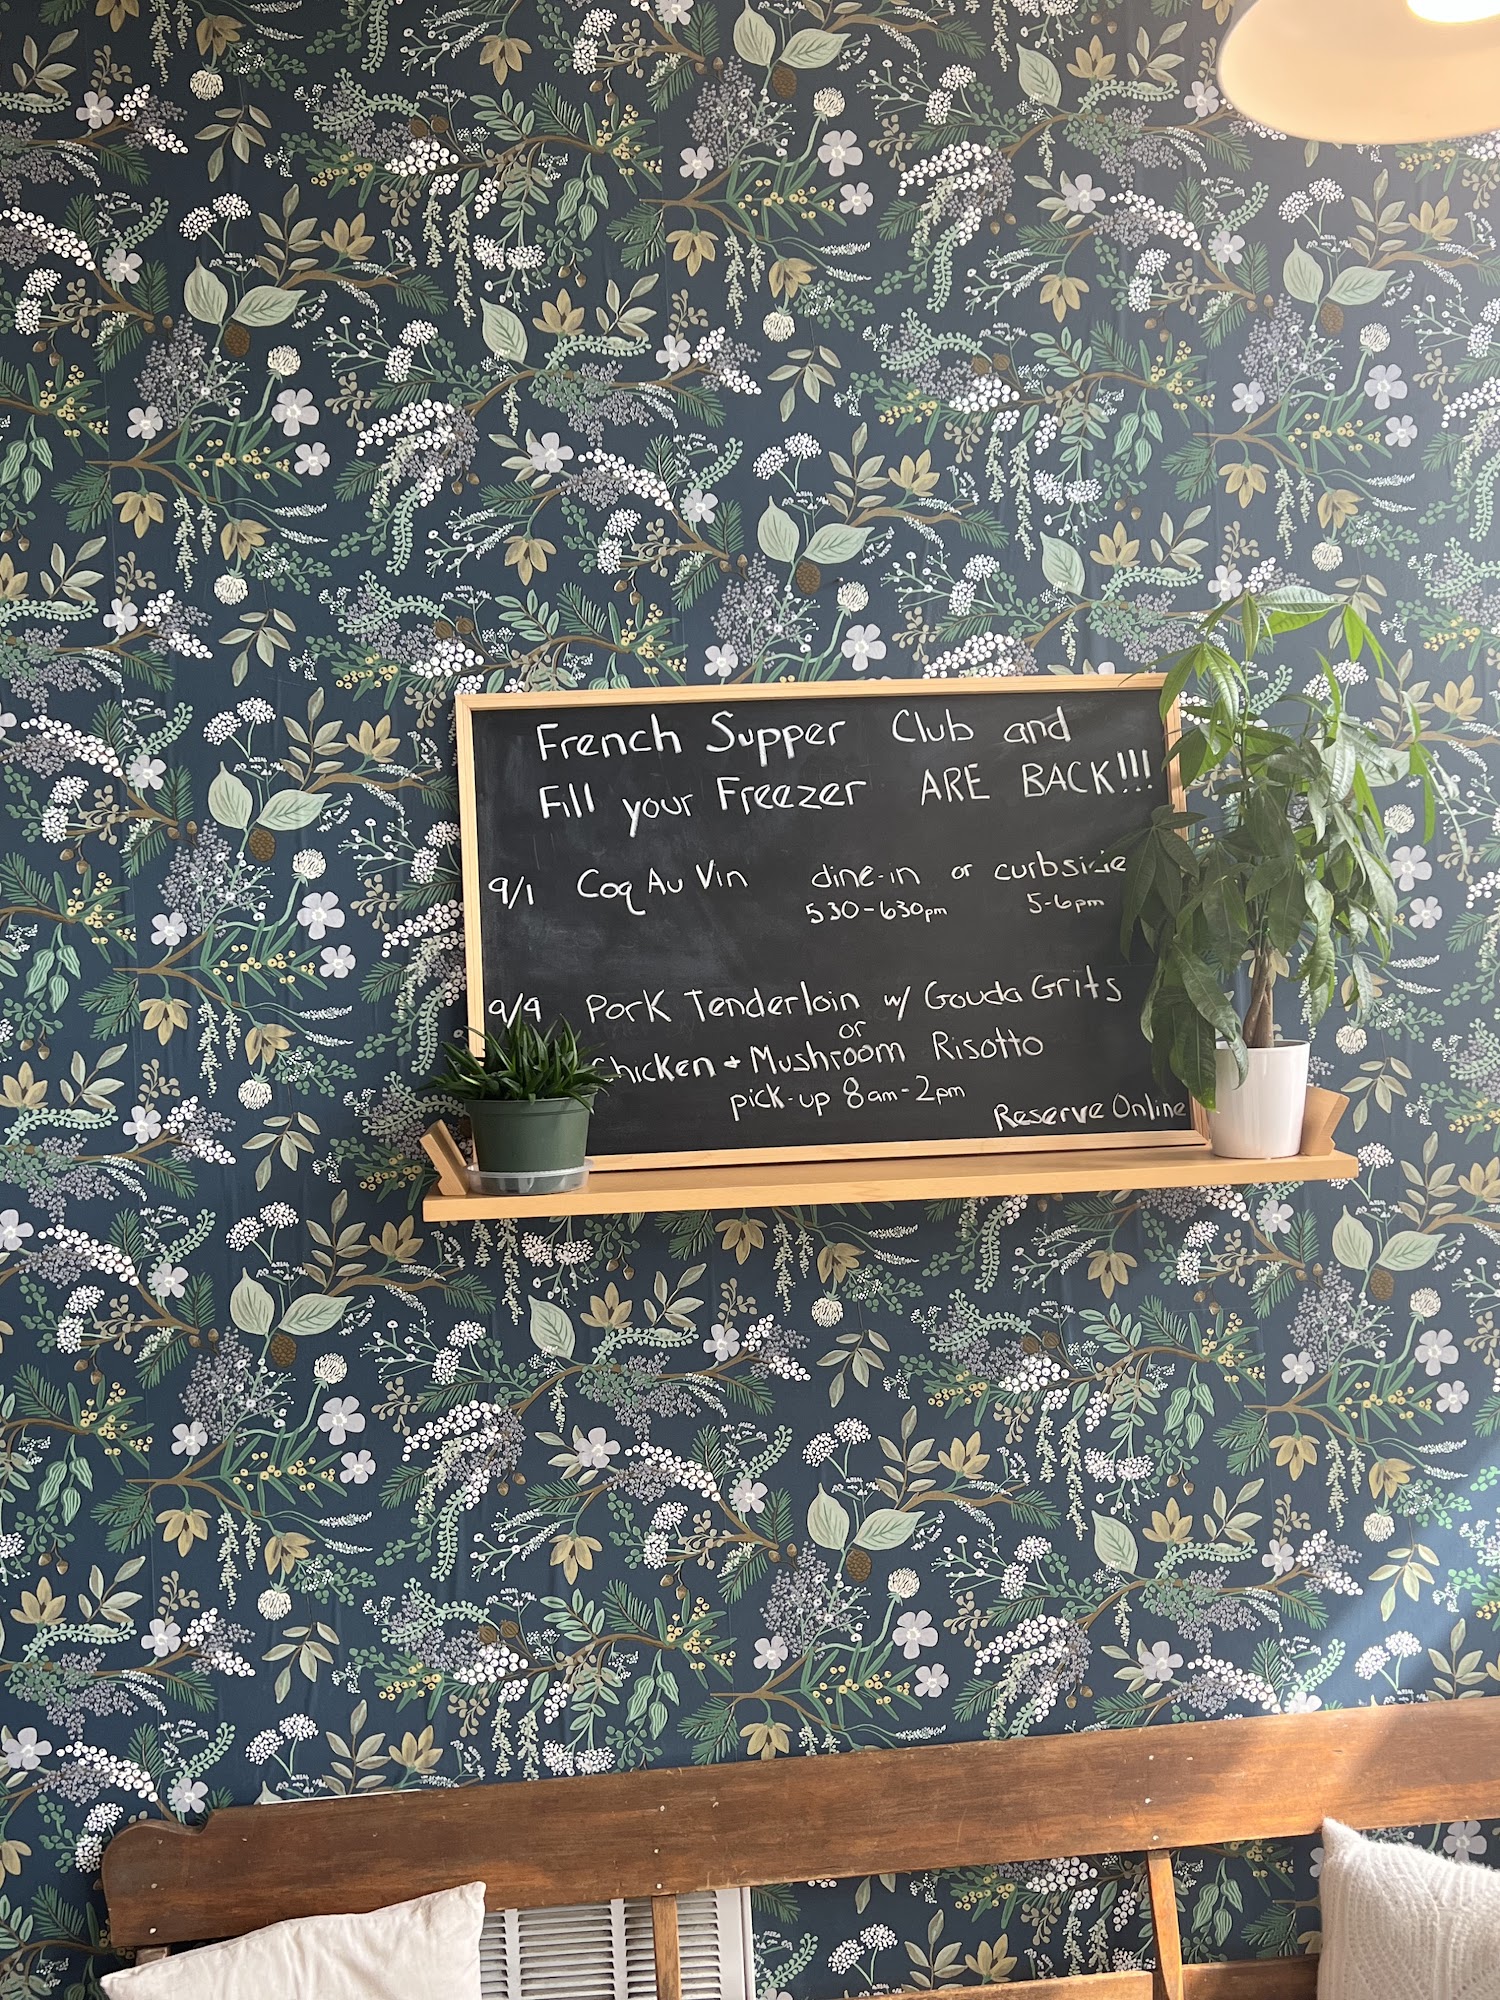 French Supper Club and
Fill your Freezer ARE BACK!!!
9/1 Coq Au Vin dine-in or curbside
530-630pm 5-6pm
9/9 Pork Tenderloin w/ Gouda Grits
or
Chicken + Mushroom Risotto
pick-up 8am-2pm
Reserve Online